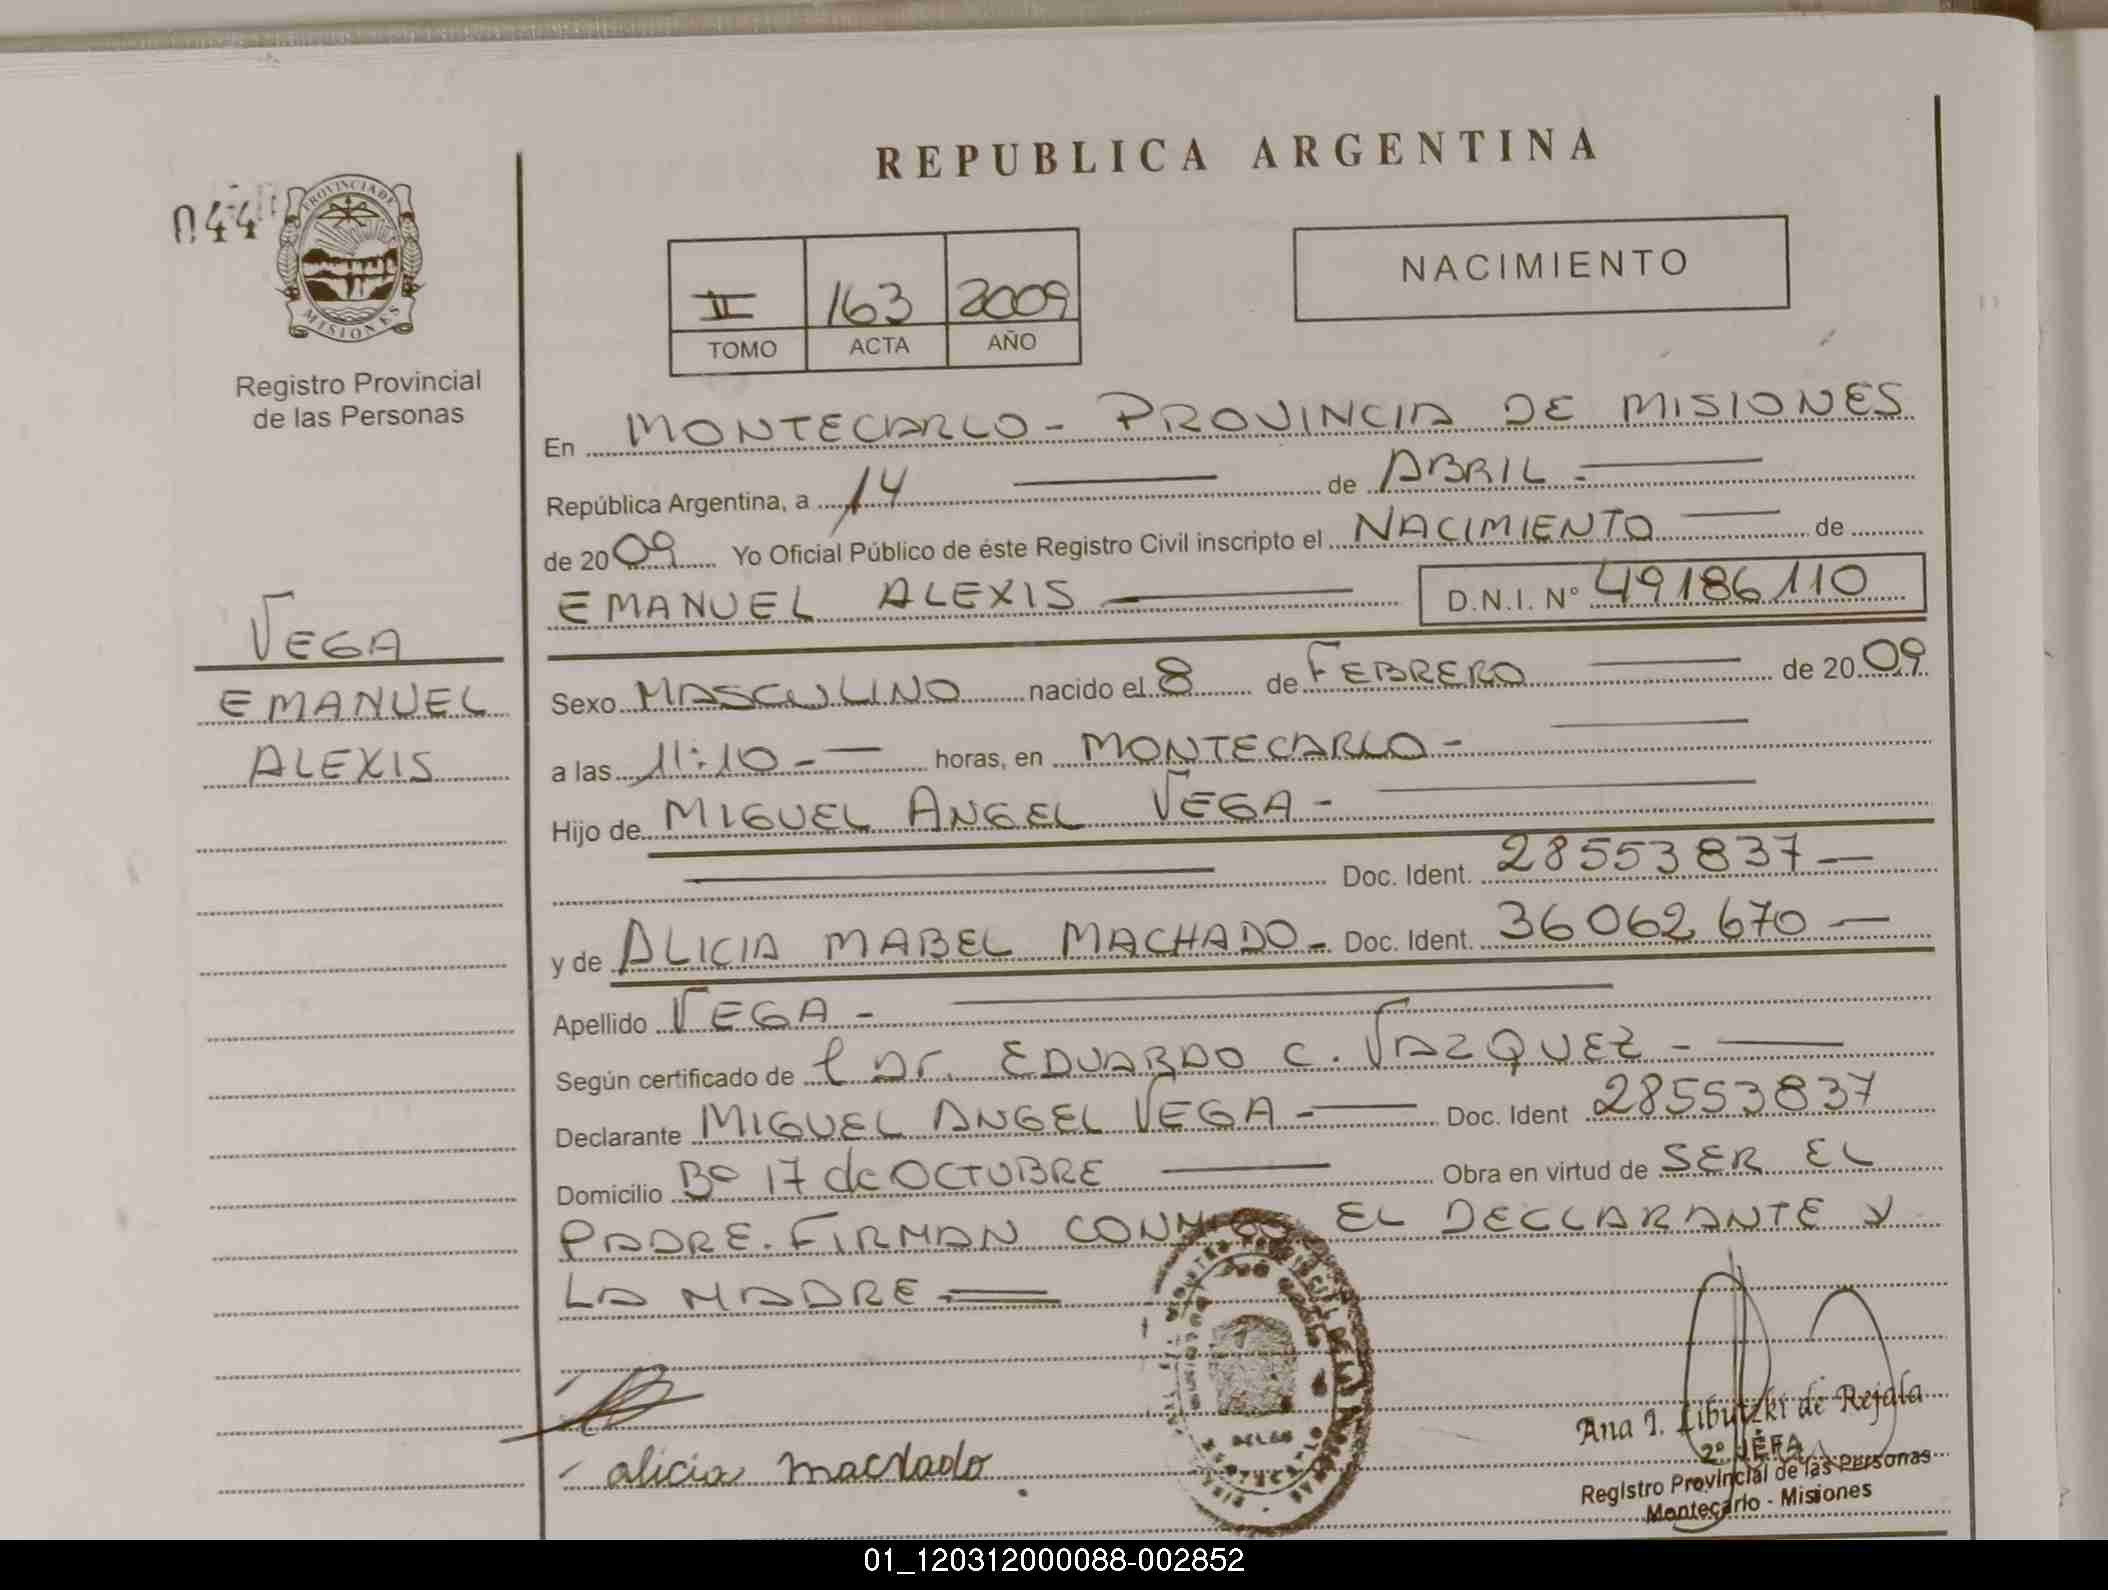 REPUBLICA ARGENTINA
044
PROVINCIA DE
MISIONES
Registro Provincial
de las Personas
II 163 2009
TOMO ACTA AÑO
NACIMIENTO
VEGA
EMANUEL
ALEXIS
En MONTECARLO - PROVINCIA DE MISIONES
República Argentina, a 14 de ABRIL.-
de 2009 Yo Oficial Público de éste Registro Civil inscripto el NACIMIENTO de
EMANUEL ALEXIS D.N.I. N° 49186110
Sexo MASCULINO nacido el 8 de FEBRERO de 2009
a las 11:10 - horas, en MONTECARLO -
Hijo de MIGUEL ANGEL VEGA -
Doc. Ident. 28553837
y de ALICIA MABEL MACHADO - Doc. Ident. 36062670
Apellido VEGA -
Según certificado de Dr. EDUARDO C. VAZQUEZ -
Declarante MIGUEL ANGEL VEGA - Doc. Ident 28553837
Domicilio Bº 17 de OCTUBRE Obra en virtud de SER EL
PADRE. FIRMAN CONMIGO EL DECLARANTE Y
LA MADRE
alicia machado
Ana I. Libutzki de Rejala
2º JEFA
Registro Provincial de las Personas
Montecarlo - Misiones
01_120312000088-002852